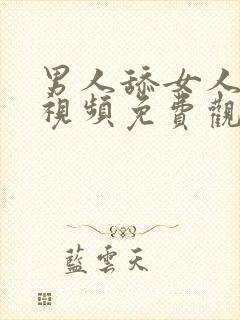 男人舔女人
視頻免費觀
藍雲天